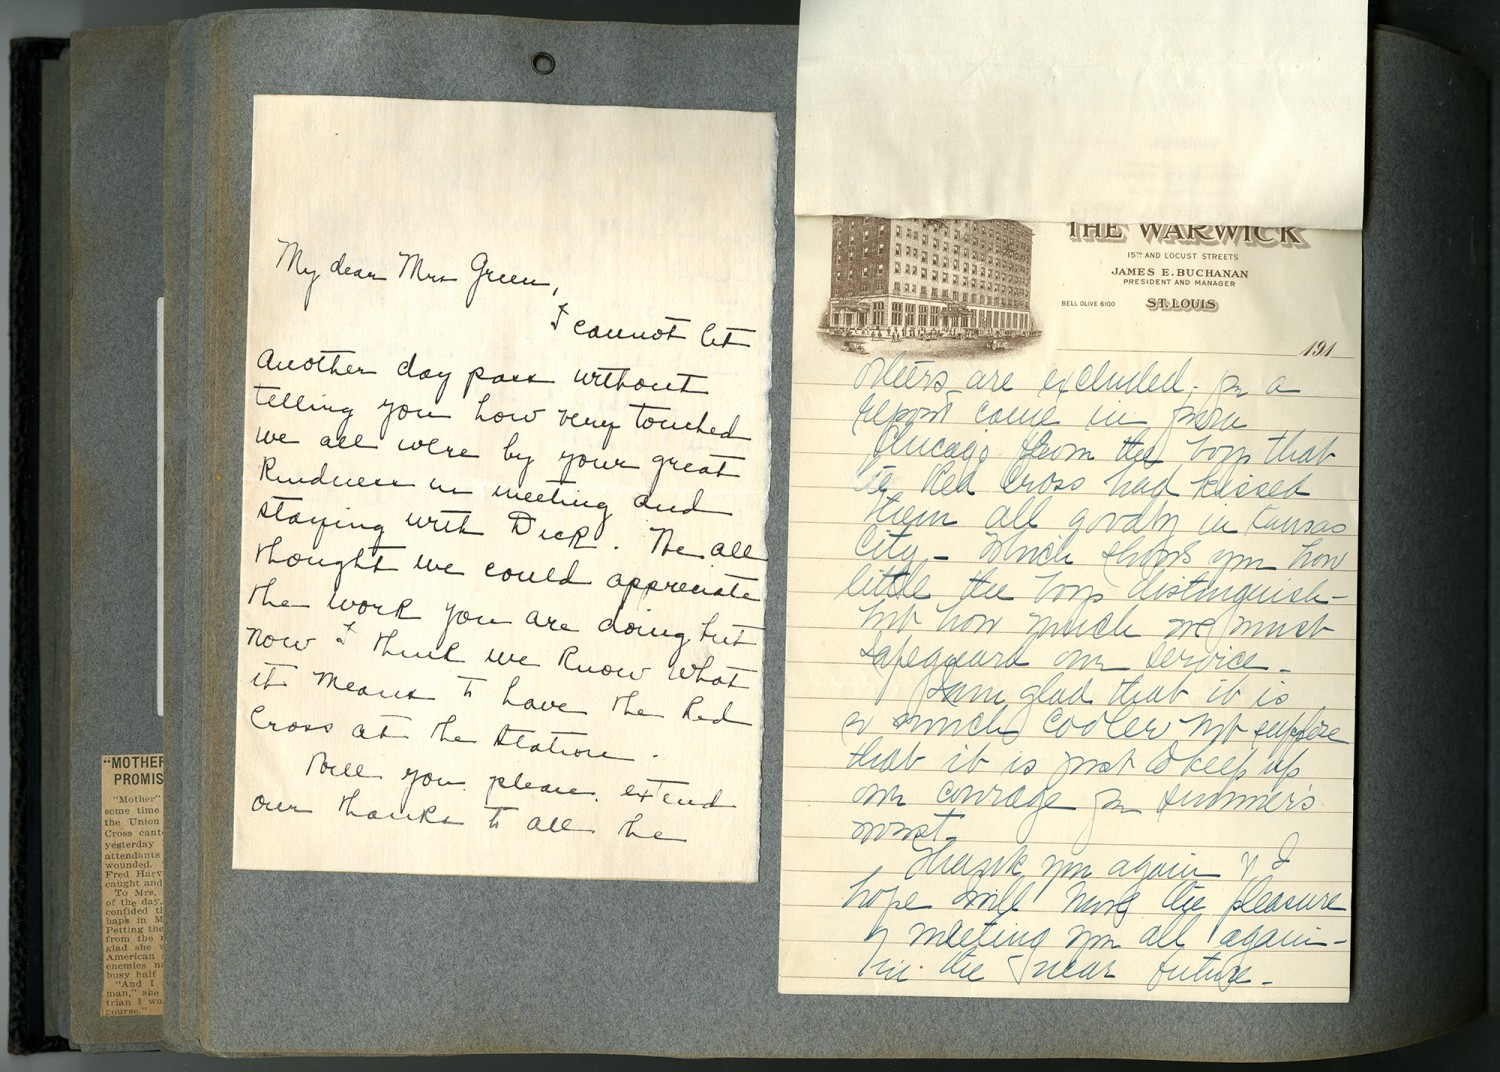 "MOTHER
PROMIS
"Mother"
some time
the Union
Cross cant
yesterday
attendants
wounded.
Fred Harv
caught and
To Mrs.
of the day,
confided th
haps in M
Petting the
from the
glad she w
American
enemies n
busy half
"And I
man," she
trian I wa
course."
My dear Mrs Green,
I cannot let
another day pass without
telling you how very touched
we all were by your great
kindness in meeting and
staying with Dick. We all
thought we could appreciate
the work you are doing but
now I think we know what
it means to have the Red
Cross at the station.
Will you please extend
our thanks to all the
THE WARWICK
15TH AND LOCUST STREETS
JAMES E. BUCHANAN
PRESIDENT AND MANAGER
BELL OLIVE 6100
ST. LOUIS
191
others are excluded. For a
report came in from
Chicago from the boys that
the Red Cross had kissed
them all goodby in Kansas
City - Which shows you how
little the boys distinguish -
but how much we must
safeguard our service -
I am glad that it is
so much cooler but suppose
that it is just to keep up
our courage for summer's
worst.
Thank you again & I
hope I will have the pleasure
of meeting you all again -
in the near future -